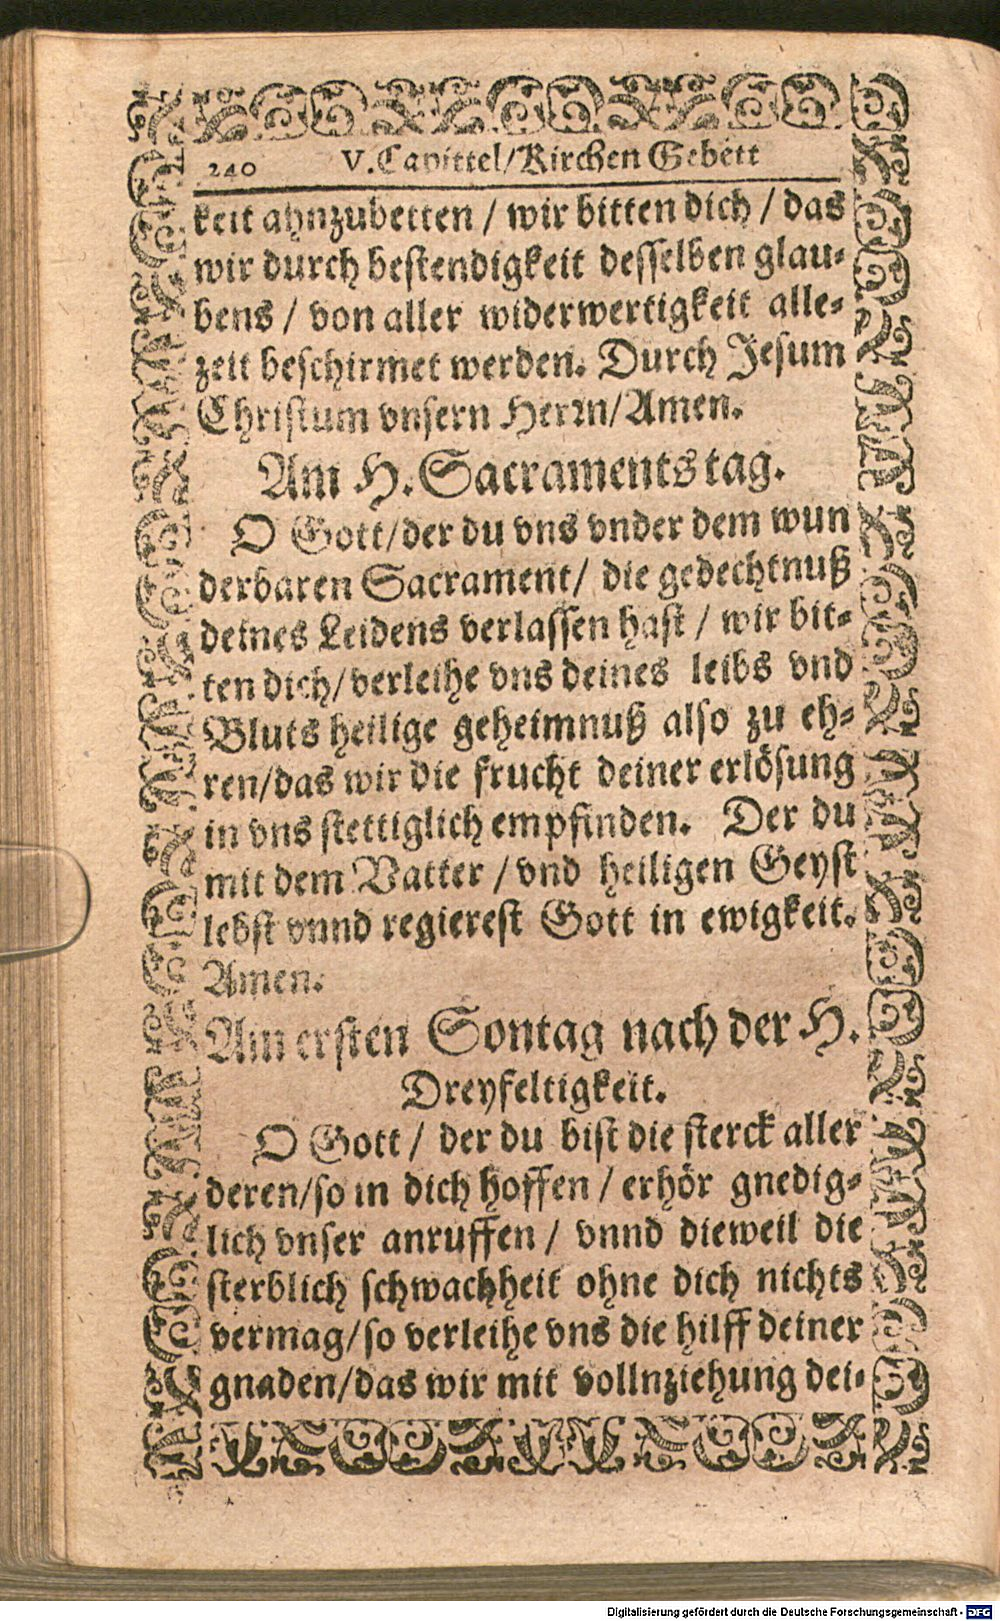 240 V. Capittel/Kirchen Gebett
keit ahnzubetten / wir bitten dich / das
wir durch bestendigkeit desselben glau-
bens / von aller widerwertigkeit alle-
zeit beschirmet werden. Durch Jesum
Christum vnsern Herrn/Amen.
Am H. Sacraments tag.
O Gott/der du vns vnder dem wun
derbaren Sacrament/ die gedechtnuß
deines Leidens verlassen hast / wir bit-
ten dich/verleihe vns deines leibs vnd
Bluts heilige geheimnuß also zu eh-
ren/das wir die frucht deiner erlösung
in vns stettiglich empfinden. Der du
mit dem Vatter / vnd heiligen Geyst
lebst vnnd regierest Gott in ewigkeit.
Amen.
Am ersten Sontag nach der H.
Dreyfeltigkeit.
O Gott / der du bist die sterck aller
deren/so in dich hoffen / erhör gnedig-
lich vnser anruffen / vnnd dieweil die
sterblich schwachheit ohne dich nichts
vermag/so verleihe vns die hilff deiner
gnaden/das wir mit vollnziehung dei-
Digitalisierung gefördert durch die Deutsche Forschungsgemeinschaft - DFG